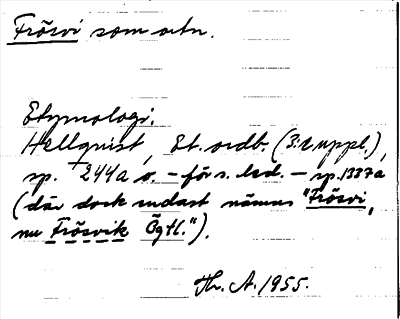 Frösvi som ortn.
Etymologi.
Hellquist, Et. ordb. (3:e uppl.),
sp. 244a o. – för s. led. – sp. 1337a
(där dock endast nämns "Frösvi,
nu Frösvik Ögtl.").
Th. A. 1955.